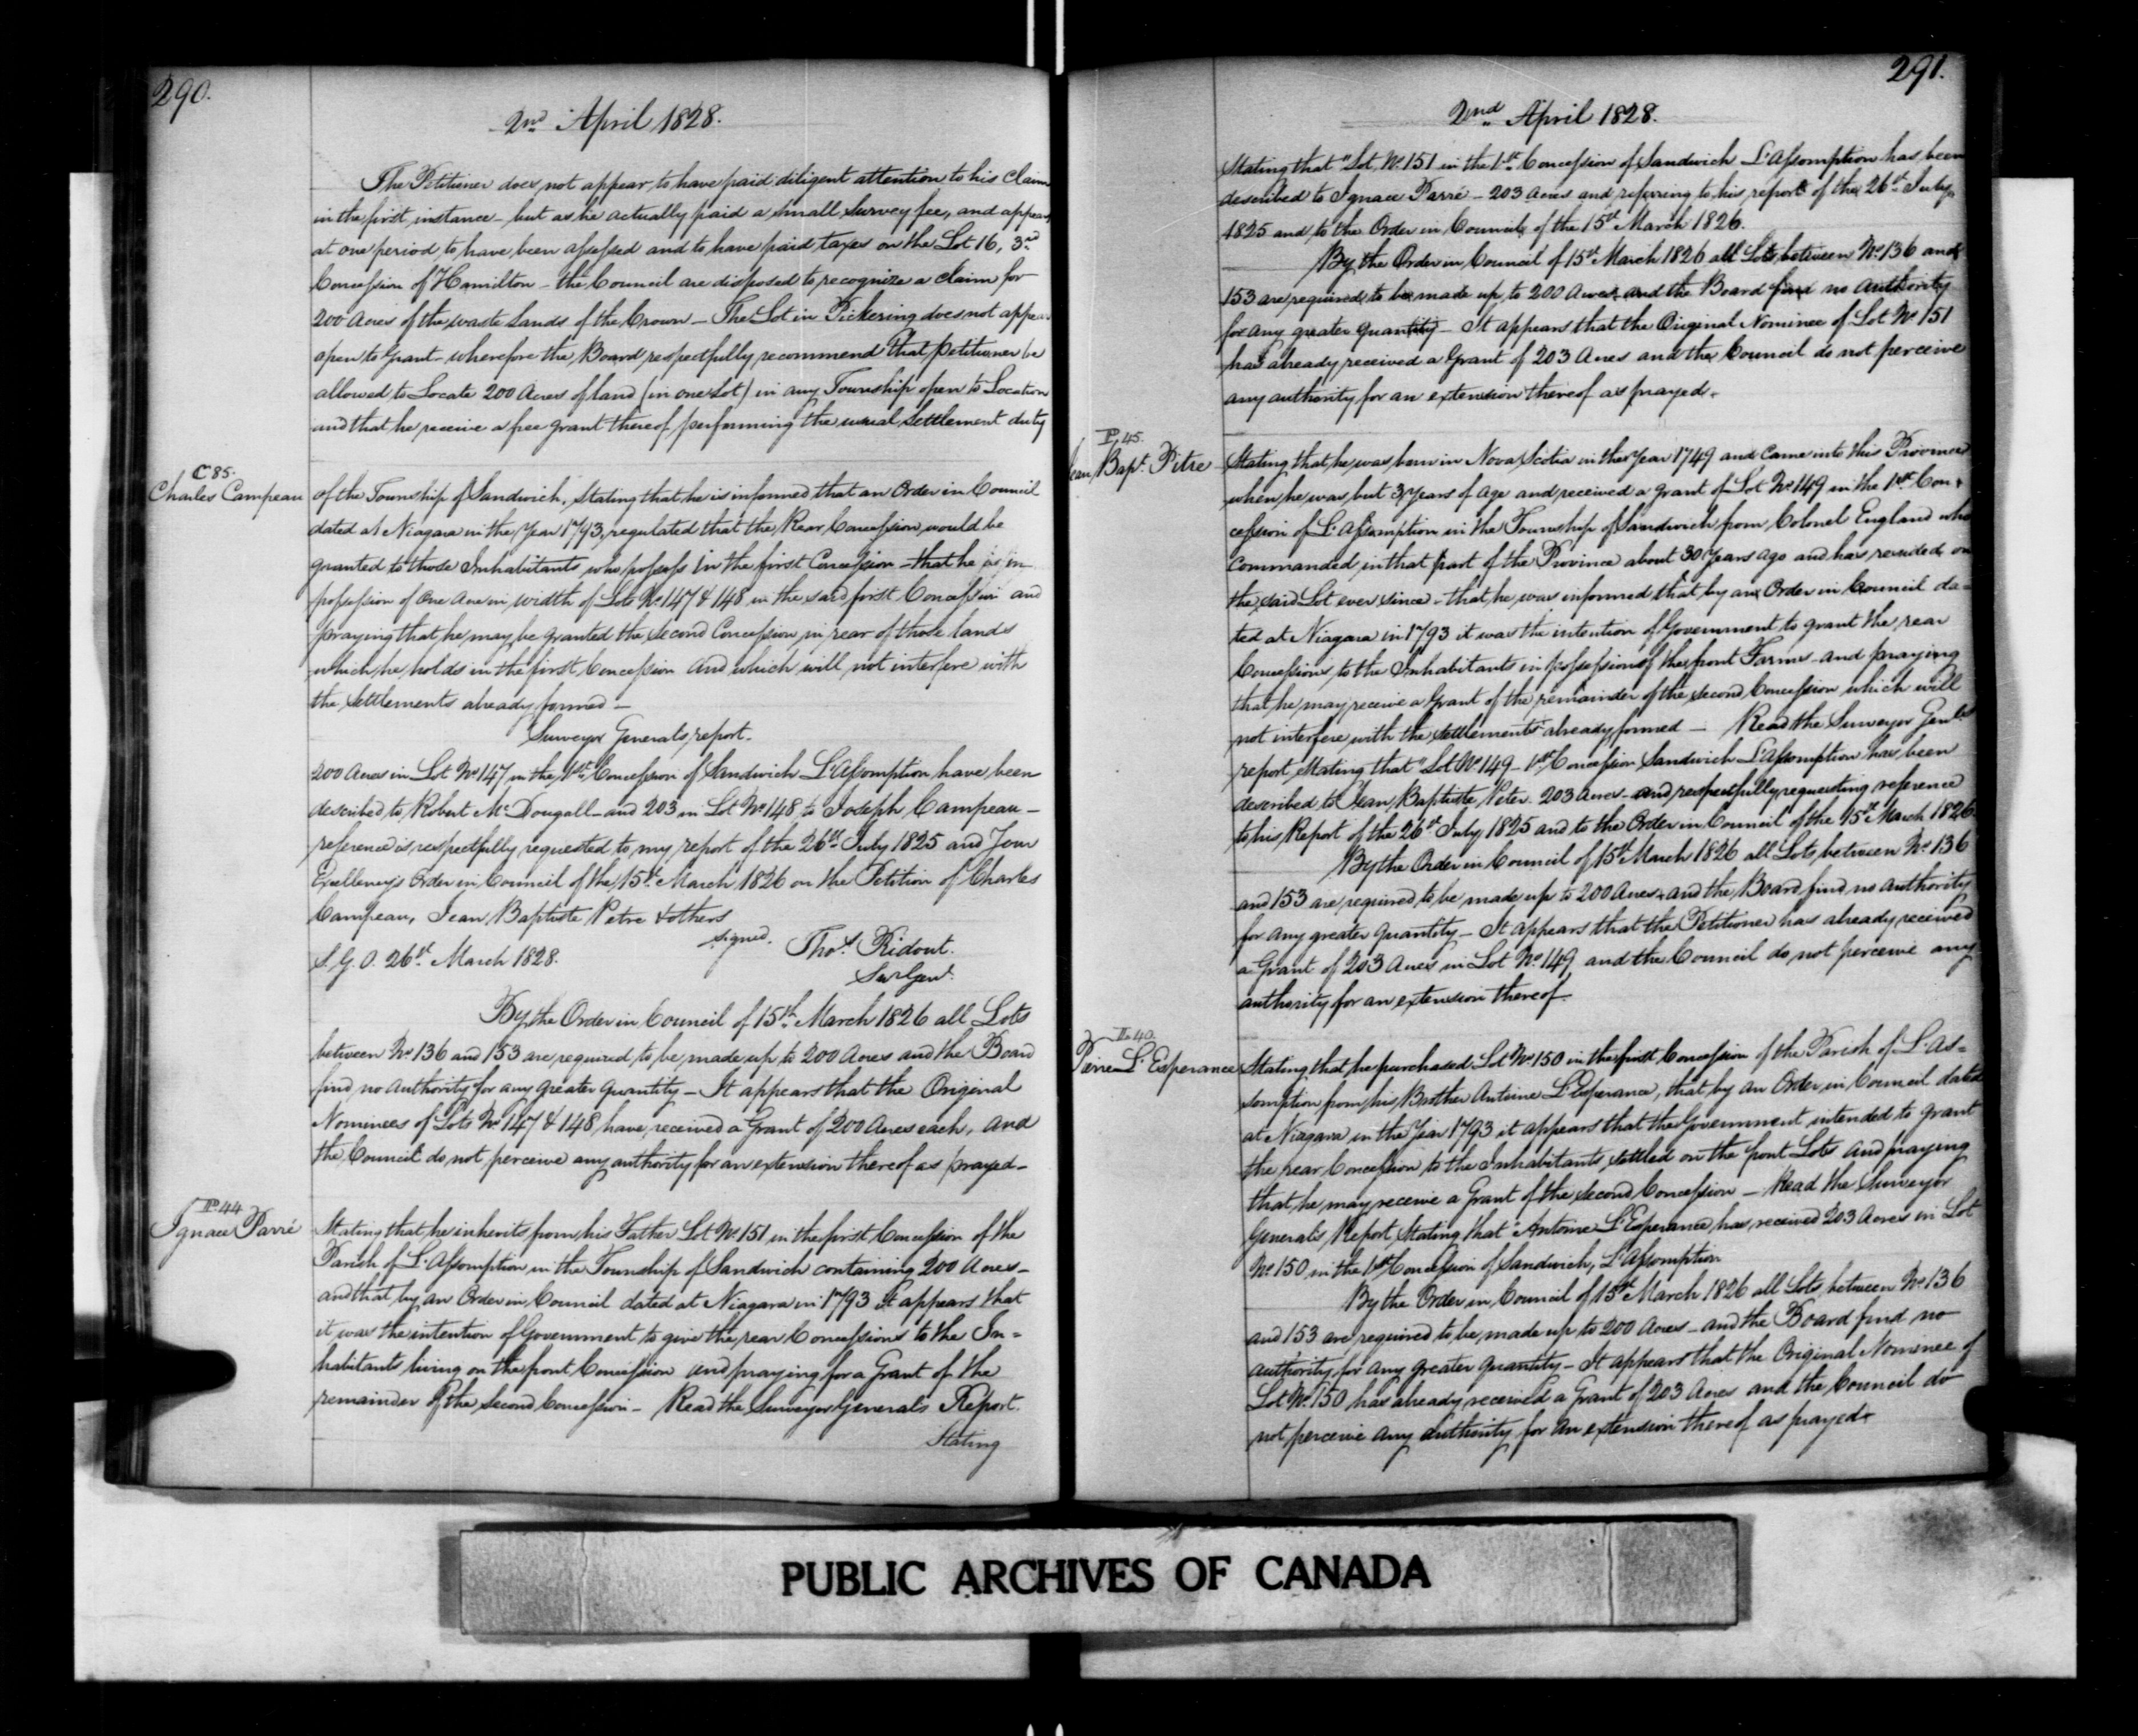 290.
2nd April 1828.
The Petitioner does not appear to have paid diligent attention to his claim
in the first instance - but as he actually paid a small survey fee, and appears
at one period to have been assessed and to have paid taxes on the Lot 16, 3rd
Concession of Hamilton - the Council are disposed to recognize a claim for
200 Acres of the waste Lands of the Crown - The Lot in Pickering does not appear
open to grant - wherefore the Board respectfully recommend that petitioner be
allowed to Locate 200 Acres of land (in one Lot) in any Township open to Location
and that he receive a free grant thereof performing the usual settlement duty
C 85.
Charles Campeau
of the Township of Sandwich, stating that he is informed that an Order in Council
dated at Niagara in the Year 1793, regulated that the Rear Concession would be
granted to those Inhabitants who possess in the first Concession - that he is in
possession of One Acre in width of Lots No. 147 & 148 in the said first Concession and
praying that he may be granted the second Concession in rear of those lands
which he holds in the first Concession and which will not interfere with
the settlements already formed -
Surveyor Generals report.
200 Acres in Lot No. 147 in the 1st Concession of Sandwich L'Assomption have been
described to Robert Mc Dougall - and 203 in Lot No. 148 to Joseph Campeau -
reference is respectfully requested to my report of the 26th July 1825 and Your
Excellency's Order in Council of the 15th March 1826 on the Petition of Charles
Campeau, Jean Baptiste Petre & others
signed. Thos. Ridout.
S. G. O. 26th March 1828.
Sur Genl.
By the Order in Council of 15th March 1826 all Lots
between No. 136 and 153 are required to be made up to 200 Acres and the Board
find no authority for any greater quantity - It appears that the Original
Nominees of Lots No. 147 & 148 have received a Grant of 200 Acres each, and
the Council do not perceive any authority for an extension thereof as prayed -
P 44
Ignace Parré
Stating that he inherits from his Father Lot No. 151 in the first Concession of the
Parish of L'Assomption in the Township of Sandwich containing 200 Acres -
and that by an Order in Council dated at Niagara in 1793 it appears that
it was the intention of Government to give the rear Concessions to the In=
habitants living on the front Concession and praying for a Grant of the
remainder of the second Concession - Read the Surveyor General's Report
Stating
291.
2nd April 1828.
Stating that "Lot No. 151 in the 1st Concession of Sandwich L'Assomption has been
described to Ignace Parré - 203 Acres and referring to his report of the 26th July
1825 and to the Order in Council of the 15th March 1826.
By the Order in Council of 15th March 1826 all Lots between No. 136 and
153 are required to be made up to 200 Acres and the Board find no authority
for any greater quantity - It appears that the Original Nominee of Lot No. 151
has already received a Grant of 203 Acres and the Council do not perceive
any authority for an extension thereof as prayed.
P 45.
Jean Bapt. Pitre
Stating that he was born in Nova Scotia in the Year 1749 and came into this Province
when he was but 3 Years of age and received a grant of Lot No. 149 in the 1st Con=
cession of L'Assomption in the Township of Sandwich from Colonel England who
commanded in that part of the Province about 30 Years ago and has resided on
the said Lot ever since - that he was informed that by an Order in Council da=
ted at Niagara in 1793 it was the intention of Government to grant the rear
Concessions to the Inhabitants in possession of the front Farms - and praying
that he may receive a Grant of the remainder of the second Concession which will
not interfere with the settlements already formed - Read the Surveyor Genls.
report stating that "Lot No. 149 - 1st Concession Sandwich L'Assomption has been
described to Jean Baptiste Peter 203 acres - and respectfully requesting reference
to his Report of the 26th July 1825 and to the Order in Council of the 15th March 1826
By the Order in Council of 15th March 1826 all Lots between No. 136
and 153 are required to be made up to 200 Acres - and the Board find no authority
for any greater quantity - It appears that the Petitioner has already received
a Grant of 203 Acres in Lot No. 149 and the Council do not perceive any
authority for an extension thereof.
40
Pierre L'Esperance
Stating that he purchased Lot No. 150 in the first Concession of the Parish of L'As=
somption from his Brother Antoine L'Esperance, that by an Order in Council dated
at Niagara in the Year 1793 it appears that the Government intended to grant
the rear Concession to the Inhabitants settled on the front Lots and praying
that he may receive a Grant of the second Concession - Read the Surveyor
General's Report stating that "Antoine L'Esperance has received 203 Acres in Lot
No. 150 in the 1st Concession of Sandwich, L'Assomption
By the Order in Council of 15th March 1826 all Lots between No. 136
and 153 are required to be made up to 200 Acres - and the Board find no
authority for any greater quantity - It appears that the Original Nominee of
Lot No. 150 has already received a Grant of 203 Acres and the Council do
not perceive any authority for an extension thereof as prayed.
PUBLIC ARCHIVES OF CANADA